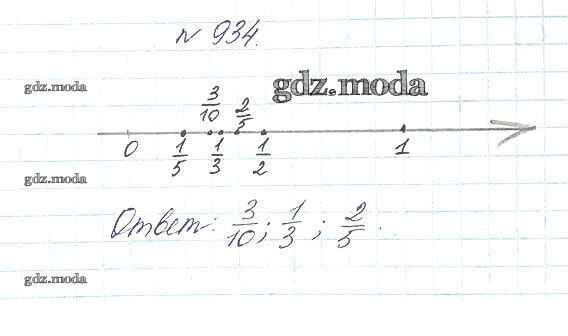 № 934.
gdz.moda
gdz.moda
3/10 2/5
0 1/5 1/3 1/2 1
gdz.moda
Ответ: 3/10; 1/3; 2/5.
gdz.moda